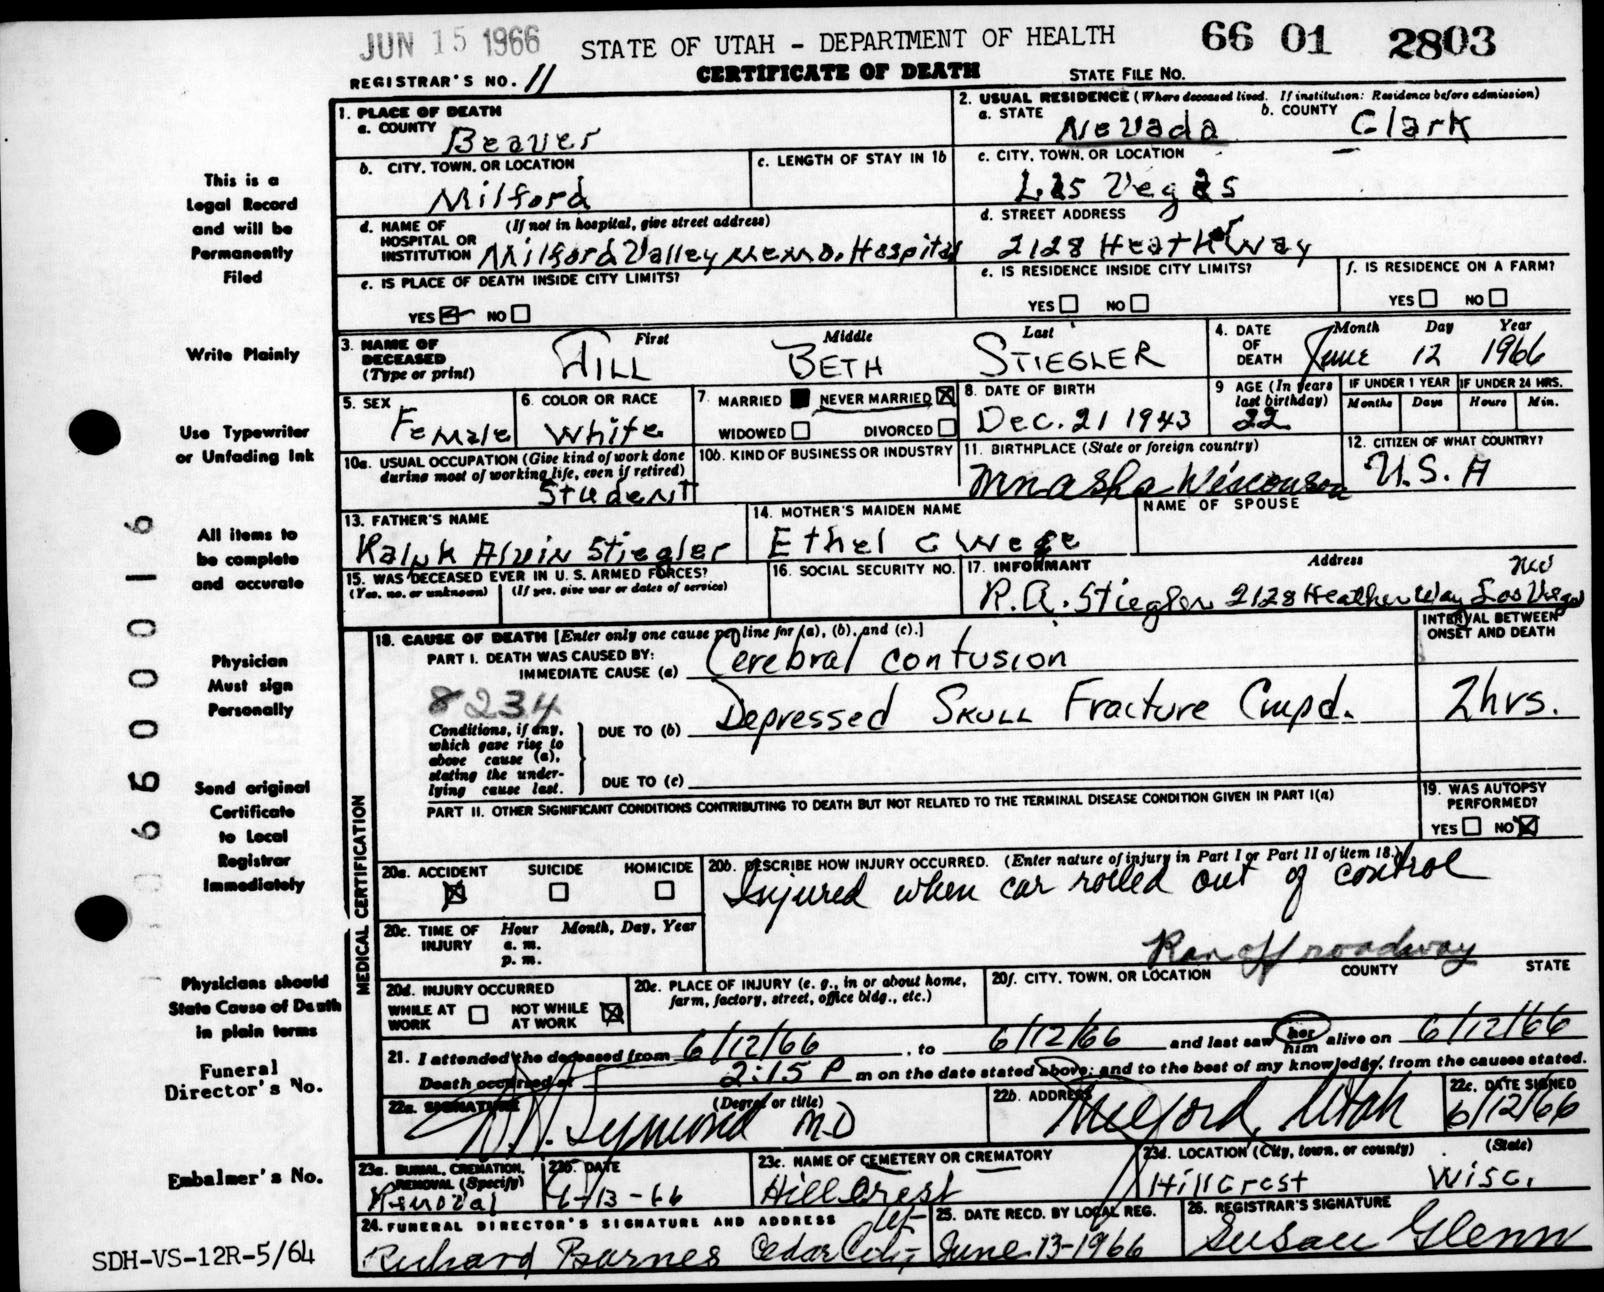 JUN 15 1966
STATE OF UTAH - DEPARTMENT OF HEALTH
66 01 2803
REGISTRAR'S NO. 11
CERTIFICATE OF DEATH
STATE FILE NO.
1. PLACE OF DEATH
a. COUNTY Beaver
2. USUAL RESIDENCE (Where deceased lived. If institution: Residence before admission)
a. STATE Nevada
b. COUNTY Clark
b. CITY, TOWN, OR LOCATION
Milford
c. LENGTH OF STAY IN 1b
c. CITY, TOWN, OR LOCATION
Las Vegas
d. NAME OF HOSPITAL OR INSTITUTION (If not in hospital, give street address)
Milford Valley Hospital
d. STREET ADDRESS
2128 Heather Way
e. IS PLACE OF DEATH INSIDE CITY LIMITS?
YES NO
e. IS RESIDENCE INSIDE CITY LIMITS?
YES NO
f. IS RESIDENCE ON A FARM?
YES NO
3. NAME OF DECEASED (Type or print)
First Middle Last
BETH STIEGLER
4. DATE OF DEATH
Month Day Year
June 12 1966
5. SEX
Female
6. COLOR OR RACE
White
7. MARRIED NEVER MARRIED
WIDOWED DIVORCED
8. DATE OF BIRTH
Dec. 21 1943
9 AGE (In years last birthday)
22
IF UNDER 1 YEAR
Months Days
IF UNDER 24 HRS.
Hours Min.
10a. USUAL OCCUPATION (Give kind of work done during most of working life, even if retired)
Student
10b. KIND OF BUSINESS OR INDUSTRY
11. BIRTHPLACE (State or foreign country)
Mnasha Wisconson
12. CITIZEN OF WHAT COUNTRY?
U.S.A
13. FATHER'S NAME
Ralph Alvin Stiegler
14. MOTHER'S MAIDEN NAME
Ethel C Wege
NAME OF SPOUSE
15. WAS DECEASED EVER IN U. S. ARMED FORCES?
(Yes, no, or unknown) (If yes, give war or dates of service)
16. SOCIAL SECURITY NO.
17. INFORMANT Address
R.A. Stiegler 2128 Heather Way Las Vegas
18. CAUSE OF DEATH [Enter only one cause per line for (a), (b), and (c).]
INTERVAL BETWEEN ONSET AND DEATH
PART I. DEATH WAS CAUSED BY:
IMMEDIATE CAUSE (a) Cerebral contusion
8234
Conditions, if any, which gave rise to above cause (a), stating the under-lying cause last.
DUE TO (b) Depressed Skull Fracture Cmpd.
2 hrs.
DUE TO (c)
PART II. OTHER SIGNIFICANT CONDITIONS CONTRIBUTING TO DEATH BUT NOT RELATED TO THE TERMINAL DISEASE CONDITION GIVEN IN PART I(a)
19. WAS AUTOPSY PERFORMED?
YES NO
MEDICAL CERTIFICATION
20a. ACCIDENT SUICIDE HOMICIDE
20b. DESCRIBE HOW INJURY OCCURRED. (Enter nature of injury in Part I or Part II of item 18.)
Injured when car rolled out of control
Ran off roadway
20c. TIME OF INJURY Hour Month, Day, Year
a. m.
p. m.
20d. INJURY OCCURRED
WHILE AT WORK NOT WHILE AT WORK
20e. PLACE OF INJURY (e. g., in or about home, farm, factory, street, office bldg., etc.)
20f. CITY, TOWN, OR LOCATION COUNTY STATE
21. I attended the deceased from 6/12/66, to 6/12/66 and last saw her him alive on 6/12/66
Death occurred at 2:15 P m on the date stated above; and to the best of my knowledge, from the causes stated.
22a. SIGNATURE (Degree or title)
Symond MD
22b. ADDRESS
Milford, Utah
22c. DATE SIGNED
6/12/66
23a. BURIAL, CREMATION, REMOVAL (Specify)
Removal
23b. DATE
6-13-66
23c. NAME OF CEMETERY OR CREMATORY
Hillcrest
23d. LOCATION (City, town, or county) (State)
Hillcrest Wisc.
24. FUNERAL DIRECTOR'S SIGNATURE AND ADDRESS
Richard Barnes Cedar City
25. DATE RECD. BY LOCAL REG.
June 13-1966
26. REGISTRAR'S SIGNATURE
Susan Glenn
This is a
Legal Record
and will be
Permanently
Filed
Write Plainly
Use Typewriter
or Unfading Ink
All items to
be complete
and accurate
Physician
Must sign
Personally
Send original
Certificate
to Local
Registrar
Immediately
Physicians should
State Cause of Death
in plain terms
Funeral
Director's No.
Embalmer's No.
SDH-VS-12R-5/64